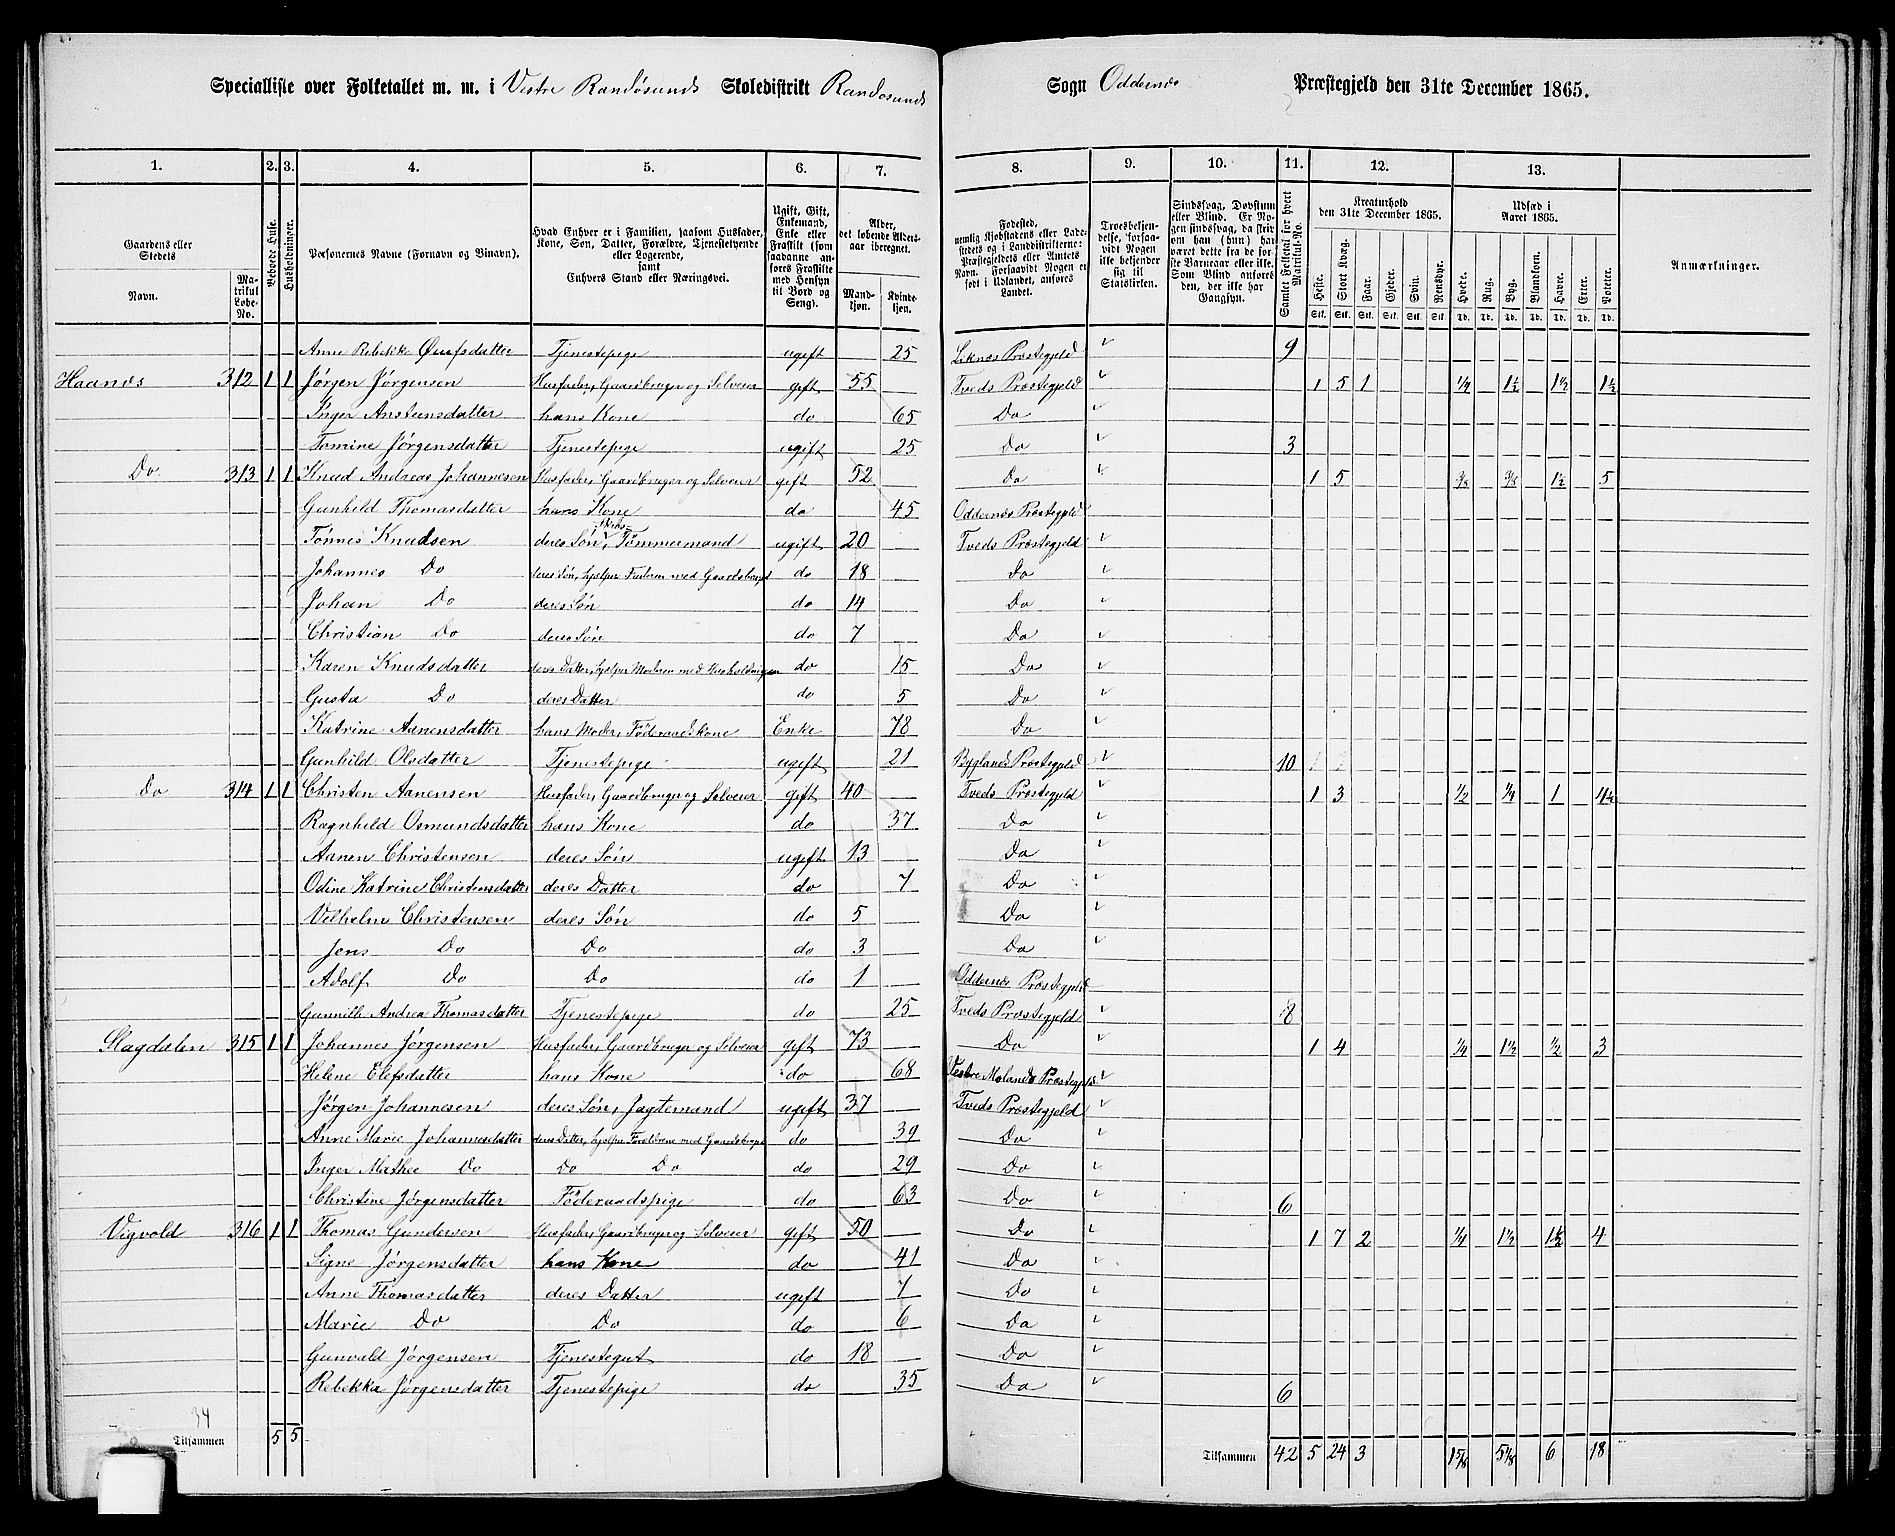 Specialliste over Folketallet m. m. i Vestre Randøsunds Skoledistrikt Randøsunds Sogn Oddernæs Præstegjeld den 31te December 1865.
1. 2. 3. 4. 5. 6. 7. 8. 9. 10. 11. 12. 13.
Gaardens eller Stedets Navn.
Matrikul Løbe-No.
Beboede Huse.
Husholdninger.
Personernes Navne (Fornavn og Binavn).
Hvad Enhver er i Familien, saasom Husfader, Kone, Søn, Datter, Forældre, Tjenestetyende eller Logerende, samt Enhvers Stand eller Næringsvei.
Ugift, Gift, Enkemand, Enke eller Fraskilt (som saadanne anføres Fraskilte med Hensyn til Bord og Seng).
Alder, det løbende Aldersaar iberegnet.
Mandkjøn. Kvindekjøn.
Fødested, nemlig Kjøbstadens eller Ladestedets og i Landdistrikterne: Præstegjeldets eller Amtets Navn. Forsaavidt Nogen er født i Udlandet, anføres Landet.
Troesbekjendelse, forsaavidt Nogen ikke bekjender sig til Statskirken.
Sindssvag, Døvstum eller Blind. Er Nogen sindssvag, da skrives om han (hun) har været dette fra de første Barneaar eller ikke. Som Blind anføres den, der ikke har Gangsyn.
Samlet Folketal for hvert Matrikul-No.
Kreaturhold den 31te December 1865.
Heste. Stort Kvæg. Faar. Gjeder. Svin. Rensdyr.
Udsæd i Aaret 1865.
Hvede. Rug. Byg. Blandkorn. Havre. Erter. Poteter.
Anmærkninger.
Stk. Stk. Stk. Stk. Stk. Stk. Td. Td. Td. Td. Td. Td. Td.
Anne Rebekke Ouufsdatter Tjenestepige ugift 25 Liknes Præstegjeld 9
Haanes 312 1 1 Jørgen Jørgensen Husfader, Gaardbruger og Selveier gift 55 Tveds Præstegjeld 1 5 1 1/4 1½ 1½ 1½
Inger Anstensdatter hans Kone do 65 Do
Tomine Jørgensdatter Tjenestepige ugift 25 Do 3
Do 313 1 1 Knud Andreas Johannesen Husfader, Gaardbruger og Selveier gift 52 Do 1 5 3/8 3/8 1½ 5
Gunhild Thomasdatter hans Kone do 45 Oddernæs Præstegjeld
Tønnes Knudsen deres Søn, Tømmermand ugift 20 Tveds Præstegjeld
Johannes Do deres Søn, hjelper Faderen med Gaardsbruget do 18 Do
Johan Do deres Søn do 14 Do
Christian Do deres Søn do 7 Do
Karen Knudsdatter deres Datter, hjelper Moderen med Husholdningen do 15 Do
Gusta Do deres Datter do 5 Do
Katrine Aanensdatter hans Moder, Föderaadskone Enke 78 Do
Gunhild Olsdatter Tjenestepige ugift 21 Byglands Præstegjeld 10
Do 314 1 1 Christen Aanensen Husfader, Gaardbruger og Selveier gift 40 Tveds Præstegjeld 1 3 1/2 1/4 1 4½
Ragnhild Osmundsdatter hans Kone do 37 Do
Aanen Christensen deres Søn ugift 13 Do
Odine Katrine Christensdatter deres Datter do 7 Do
Vilhelm Christensen deres Søn do 5 Do
Jens Do Do do 3 Do
Adolf Do Do do 1 Oddernæs Præstegjeld
Gunnille Andrea Thomasdatter Tjenestepige do 25 Tveds Præstegjeld 8
Slagdalen 315 1 1 Johannes Jørgensen Husfader, Gaardbruger og Selveier gift 73 Do 1 4 1/4 1½ 1/2 3
Helene Elefsdatter hans Kone do 68 Vestre Molands Præstegjeld
Jørgen Johannesen deres Søn, Jagtemand ugift 37 Tveds Præstegjeld
Anne Marie Johannesdatter deres Datter, hjelper Forældrene med Gaardsbruget do 39 Do
Inger Mathee Do Do Do do 29 Do
Christine Jørgensdatter Föderaadspige do 63 Do 6
Vigvold 316 1 1 Thomas Gundersen Husfader, Gaardbruger og Selveier gift 50 Do 1 7 2 1/4 1½ 1½ 4
Signe Jørgensdatter hans Kone do 41 Do
Anne Thomasdatter deres Datter ugift 7 Do
Marie Do Do do 6 Do
Gunvald Jørgensen Tjenestegut do 18 Do
Rebekka Jørgensdatter Tjenestepige do 35 Do 6
34
Tilsammen 5 5 Tilsammen 42 5 24 3 1 5/8 5 1/8 6 18